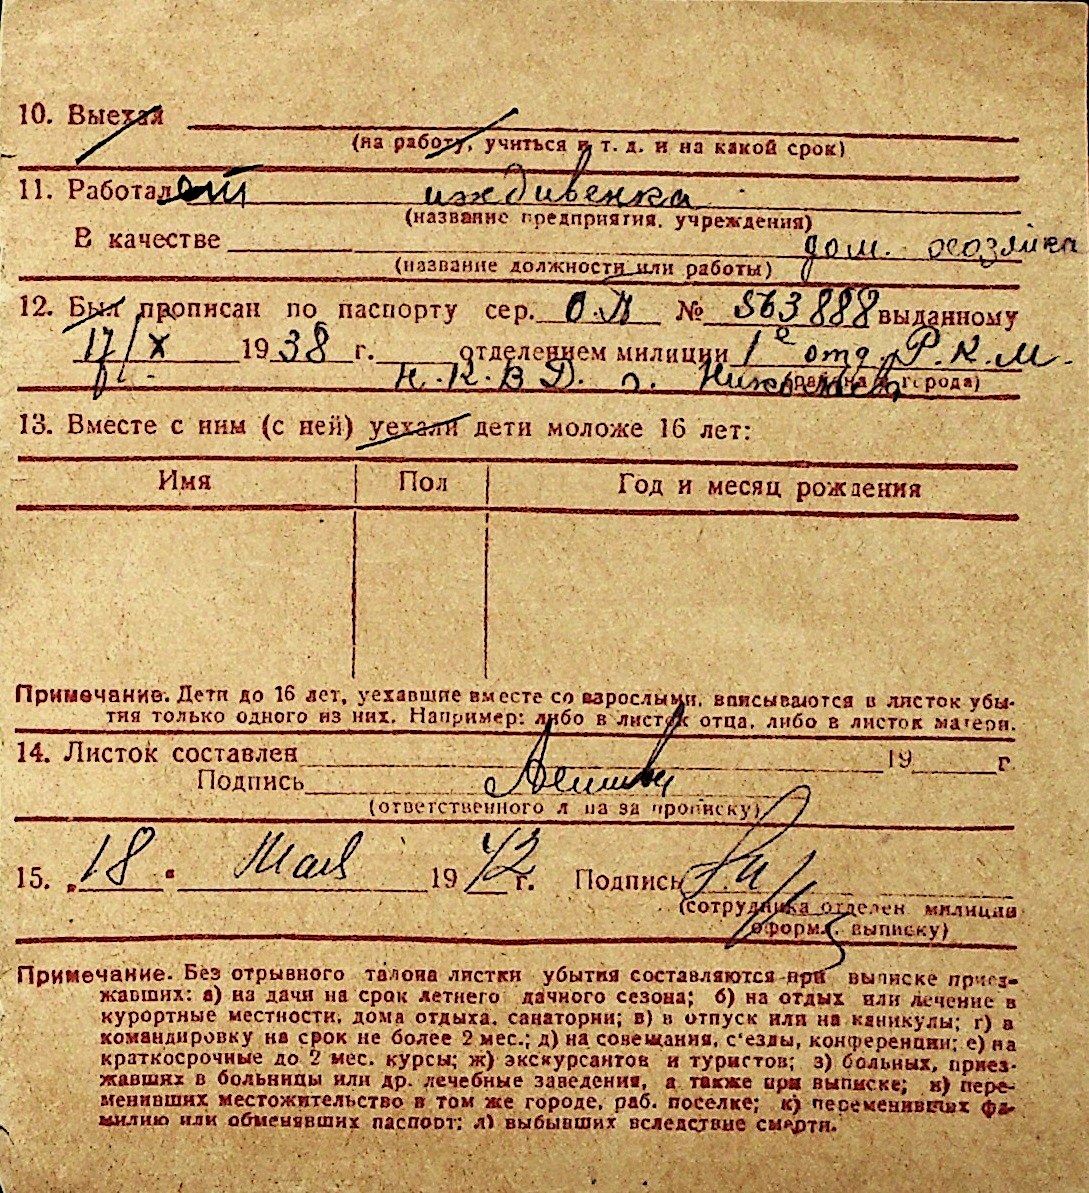 10. Выехал
(на работу, учиться и т. д. и на какой срок)
11. Работает иждивенка
(название предприятия, учреждения)
В качестве дом. хозяйка
(название должности или работы)
12. Был прописан по паспорту сер. О.Л № 563888 выданному
17/X 1938 г. отделением милиции 1е отд. Р.К.М.
Н.К.В.Д. г.
(района, города)
13. Вместе с ним (с ней) уехали дети моложе 16 лет:
Имя Пол Год и месяц рождения
Примечание. Дети до 16 лет, уехавшие вместе со взрослыми, вписываются в листок убы-
тия только одного из них. Например: либо в листок отца, либо в листок матери.
14. Листок составлен 19 г
Подпись
(ответственного лица за прописку)
15. „18" Мая 1942 г. Подпись
(сотрудника отделен. милиции
оформ. выписку)
Примечание. Без отрывного талона листки убытия составляются при выписке приез-
жавших: а) на дачи на срок летнего дачного сезона; б) на отдых или лечение в
курортные местности, дома отдыха, санатории; в) в отпуск или на каникулы; г) в
командировку на срок не более 2 мес.; д) на совещания, с'езды, конференции; е) на
краткосрочные до 2 мес. курсы; ж) экскурсантов и туристов; з) больных, приез-
жавших в больницы или др. лечебные заведения, а также при выписке; и) пере-
менивших местожительство в том же городе, раб. поселке; к) переменивших фа-
милию или обменявших паспорт; л) выбывших вследствие смерти.